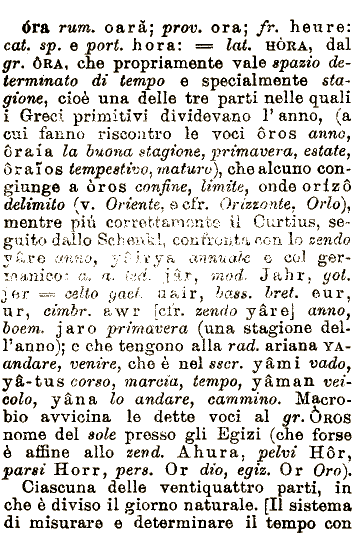 óra rum. oară; prov. ora; fr. heure:
cat. sp. e port. hora: = lat. HÒRA, dal
gr. ÔRA, che propriamente vale spazio de-
terminato di tempo e specialmente sta-
gione, cioè una delle tre parti nelle quali
i Greci primitivi dividevano l'anno, (a
cui fanno riscontro le voci ôros anno,
ôraia la buona stagione, primavera, estate,
ôraîos tempestivo, maturo), che alcuno con-
giunge a òros confine, limite, onde orízô
delimito (v. Oriente, e cfr. Orizzonte, Orlo),
mentre più correttamente il Curtius, se-
guito dallo Schenkl, confronta con lo zendo
yâre anno, yâirya annuale e col ger-
manico: a. a. ted. jâr, mod. Jahr, got.
jer = celto gael. uair, bass. bret. eur,
ur, cimbr. awr [cfr. zendo yâre] anno,
boem. jaro primavera (una stagione del-
l'anno); e che tengono alla rad. ariana YA-
andare, venire, che è nel sscr. yâmi vado,
yâ-tus corso, marcia, tempo, yâman vei-
colo, yâna lo andare, cammino. Macro-
bio avvicina le dette voci al gr. ÒROS
nome del sole presso gli Egizi (che forse
è affine allo zend. Ahura, pelvi Hôr,
parsi Horr, pers. Or dio, egiz. Or Oro).
Ciascuna delle ventiquattro parti, in
che è diviso il giorno naturale. [Il sistema
di misurare e determinare il tempo con